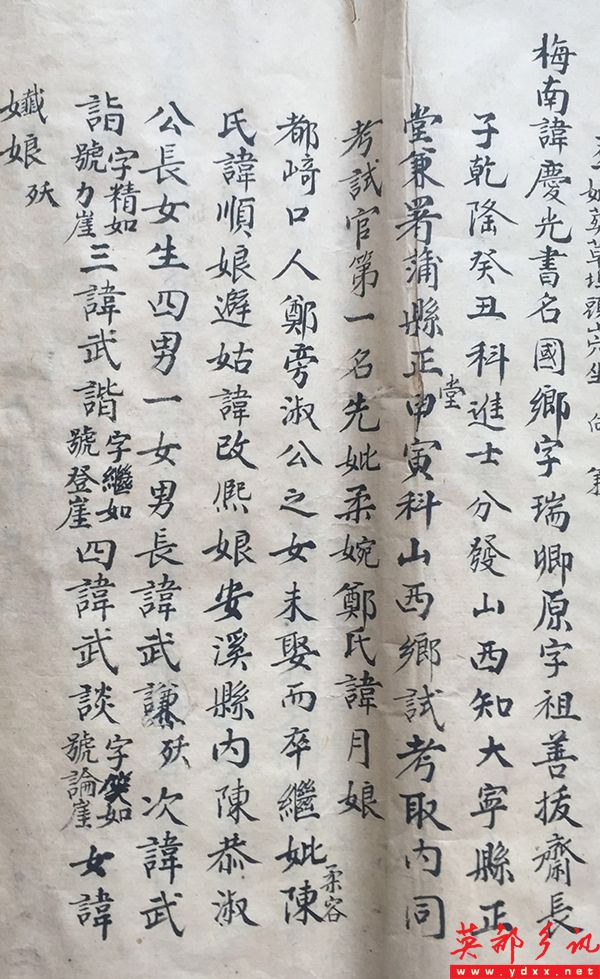 妣葬草坵頭山穴坐 向 兼
梅南諱慶光書名國鄉字瑞卿原字祖善拔齋長
子乾隆癸丑科進士分發山西知大寧縣正
堂兼署蒲縣正堂甲寅科山西鄉試考取內同
考試官第一名先妣柔婉鄭氏諱月娘
都崎口人鄭旁淑公之女未娶而卒繼妣柔容陳
氏諱順娘避姑諱改熙娘安溪縣內陳恭淑
公長女生四男一女男長諱武謙殀次諱武
詣字精如號力崖三諱武諧字繼如號登崖四諱武談字笑如號論崖女諱
孅娘殀
英都乡讯
www.ydxx.net